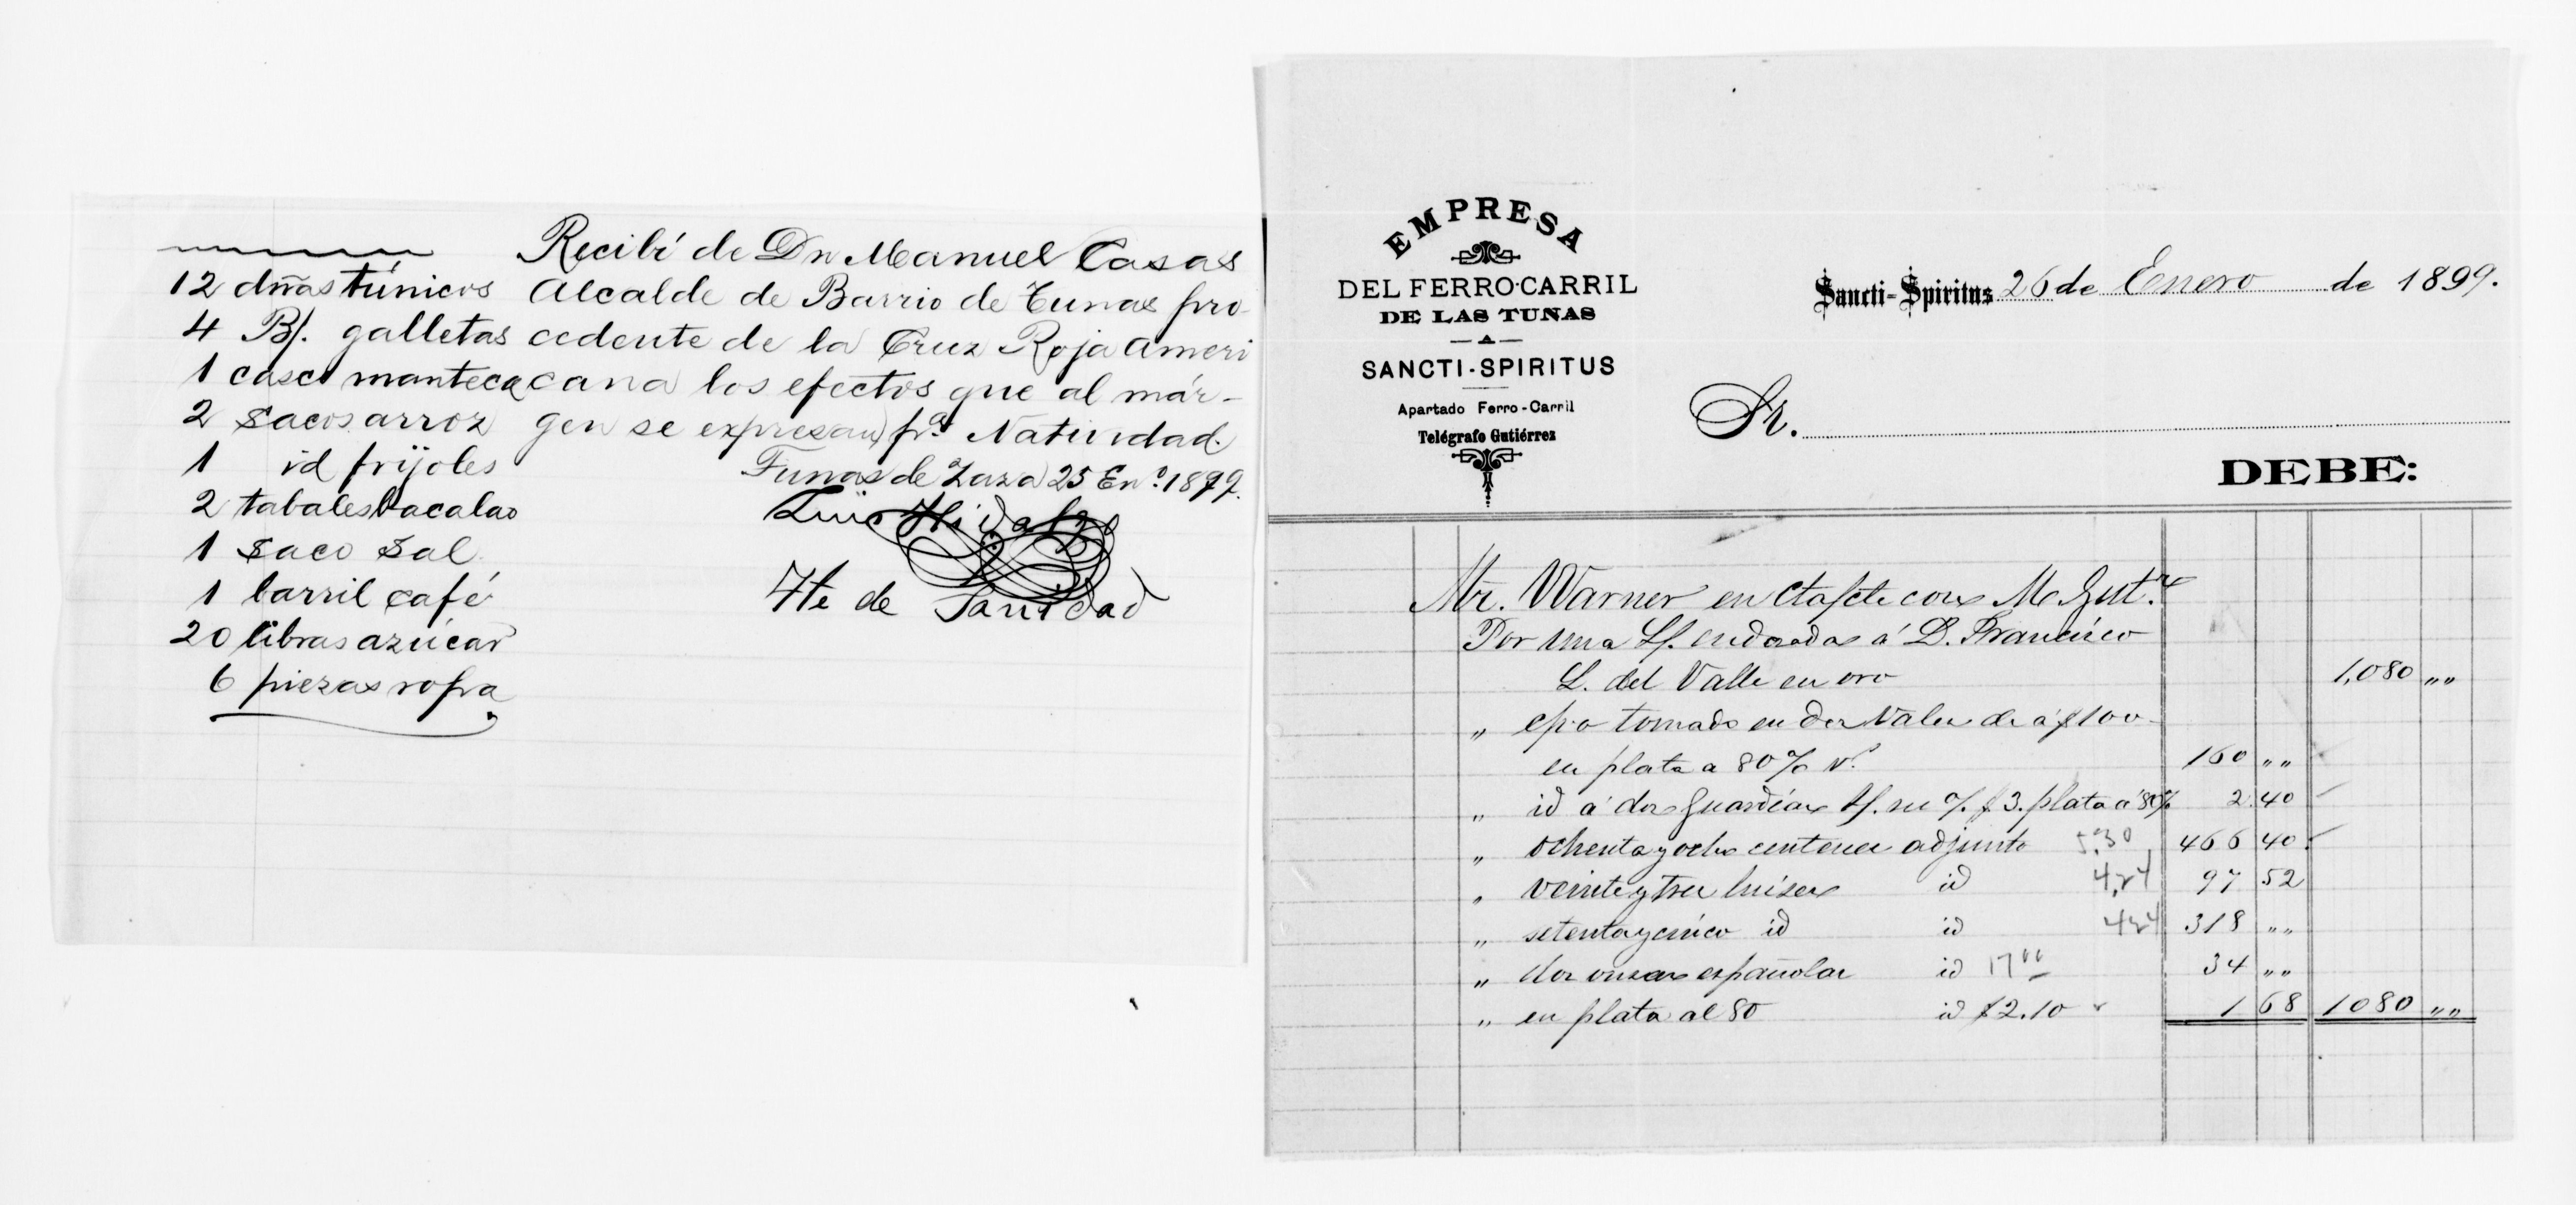 Recibí de Dn Manuel Casas
Alcalde de Barrio de Tunas pro-
cedente de la Cruz Roja Ameri
cana los efectos que al már-
gen se expresan pª Natividad.
Tunas de Zaza 25 Enº 1899.
Luis Hidalgo
Tte de Sanidad
12 dnãs túnicos
4 B/. galletas
1 casco manteca
2 sacos arroz
1 id frijoles
2 tabales bacalao
1 saco sal
1 barril café
20 libras azúcar
6 piezas ropa
EMPRESA
DEL FERRO-CARRIL
DE LAS TUNAS
A
SANCTI-SPIRITUS
Apartado Ferro-Carril
Telégrafo Gutiérrez
Sancti-Spiritus 26 de Enero de 1899.
Sr.
DEBE:
Mr. Warner en con M. Gutz
Por una L/. endosada á D. Francisco
L. del Valle en oro 1,080 ,,,,
,, tomado en dos Vales de á $100
en plata a 80% 160 ,,,,
,, id á dos Guardias $3. plata á 80% 2 40
,, ochenta y ocho centenes adjunto 5,30 466 40
,, veinte y tres luises id 4,24 97 52
,, setenta y cinco id id 424 318 ,,,,
,, dos onzas españolas id 17 00 34 ,,,,
,, en plata al 80 id $2.10 1 68 1080 ,,,,